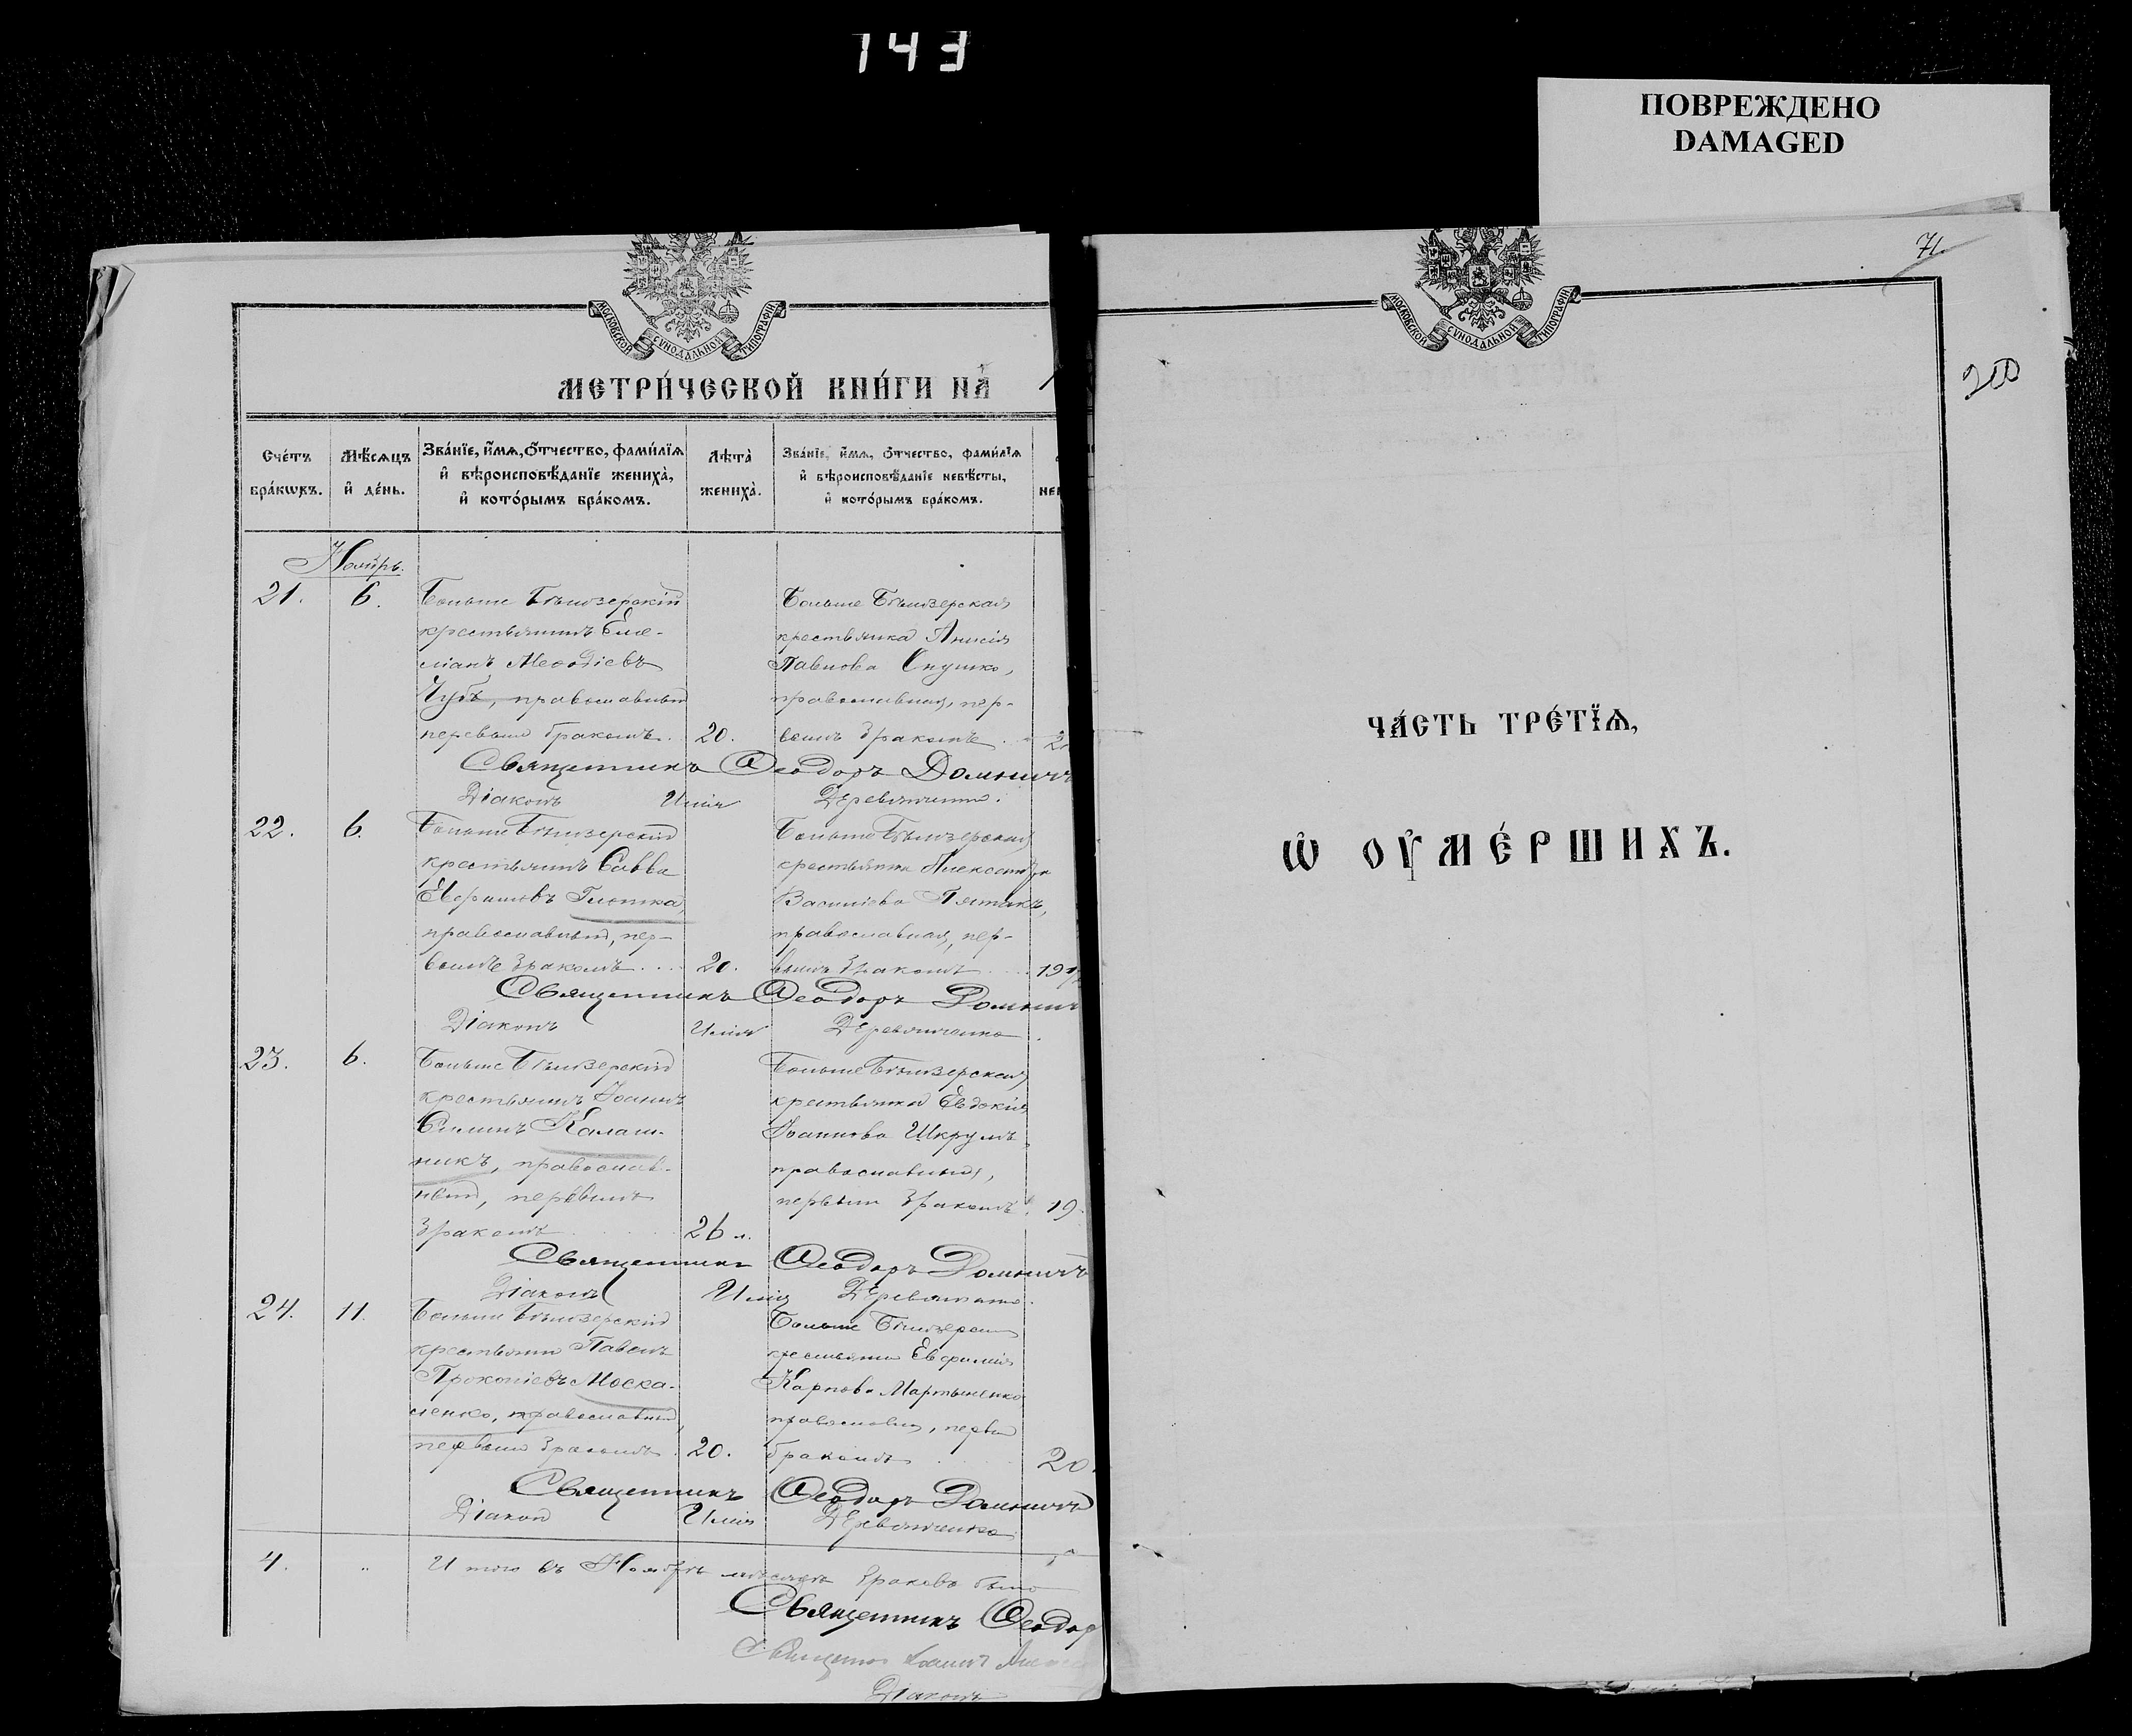 143
ПОВРЕЖДЕНО
DAMAGED
МОСКОВСКОЙ СѴНОДАЛЬНОЙ ТИПОГРАФІИ
МЕТРИ́ЧЕСКОЙ КНИ́ГИ НА̀
Сче́тъ бра́кѡвъ.
Мѣ́сѧцъ и҆ де́нь.
Зва́нїе, и҆́мѧ, ѻ҆́тчество, фами́лїѧ и҆ вѣроисповѣ́данїе жениха̀, и҆ кото́рымъ бра́комъ.
Лѣта̀ жениха̀.
Зва́нїе, и҆́мѧ, ѻ҆́тчество, фами́лїѧ и҆ вѣроисповѣ́данїе невѣ́сты, и҆ кото́рымъ бра́комъ.
Ноябрь.
21. 6.
Больше Бѣлозерскій
крестьянинъ Еме-
ліанъ Меѳодіевъ
Чубъ, православный
первымъ бракомъ. 20.
Больше Бѣлозерская
крестьянка Анисія
Павлова Слушко,
православная, пер-
вымъ бракомъ
Священникъ Ѳеодоръ Домничъ
Діаконъ Илія Деревянченко.
22. 6.
Больше Бѣлозерскій
крестьянинъ Савва
Евфимовъ Глотка,
православный, пер-
вымъ бракомъ.... 20.
Больше Бѣлозерская
крестьянка Александра
Василіева Пятакъ,
православная, пер-
вымъ бракомъ
Священникъ Ѳеодоръ Домничъ
Діаконъ Илія Деревянченко.
23. 6.
Больше Бѣлозерскій
крестьянинъ Іоаннъ
Симинъ Калаш-
никъ, православ-
ный, первымъ
бракомъ 26 л.
Больше Бѣлозерская
крестьянка Евдокія
Іоаннова Шкрумъ
православная,
первымъ бракомъ. 19.
Священникъ Ѳеодоръ Домничъ
Діаконъ Илія Деревянченко.
24. 11.
Больше Бѣлозерскій
крестьянинъ Павелъ
Прокопіевъ Моска-
ленко, православный,
первымъ бракомъ. 20.
Больше Бѣлозерская
крестьянка Евфимія
Карпова Мартыненко
православная, первымъ
бракомъ 20.
Священникъ Ѳеодоръ Домничъ
Діаконъ Илія Деревянченко
4. „ Итого въ Ноябрѣ мѣсяцѣ браковъ было
Священникъ Ѳеодор
Священникъ Іоаннъ
Діаконъ
71.
МОСКОВСКОЙ СѴНОДАЛЬНОЙ ТИПОГРАФІИ
ЧА́СТЬ ТРЕ́ТЇѦ,
Ѡ҆ ОУ҆МЕ́РШИХЪ.